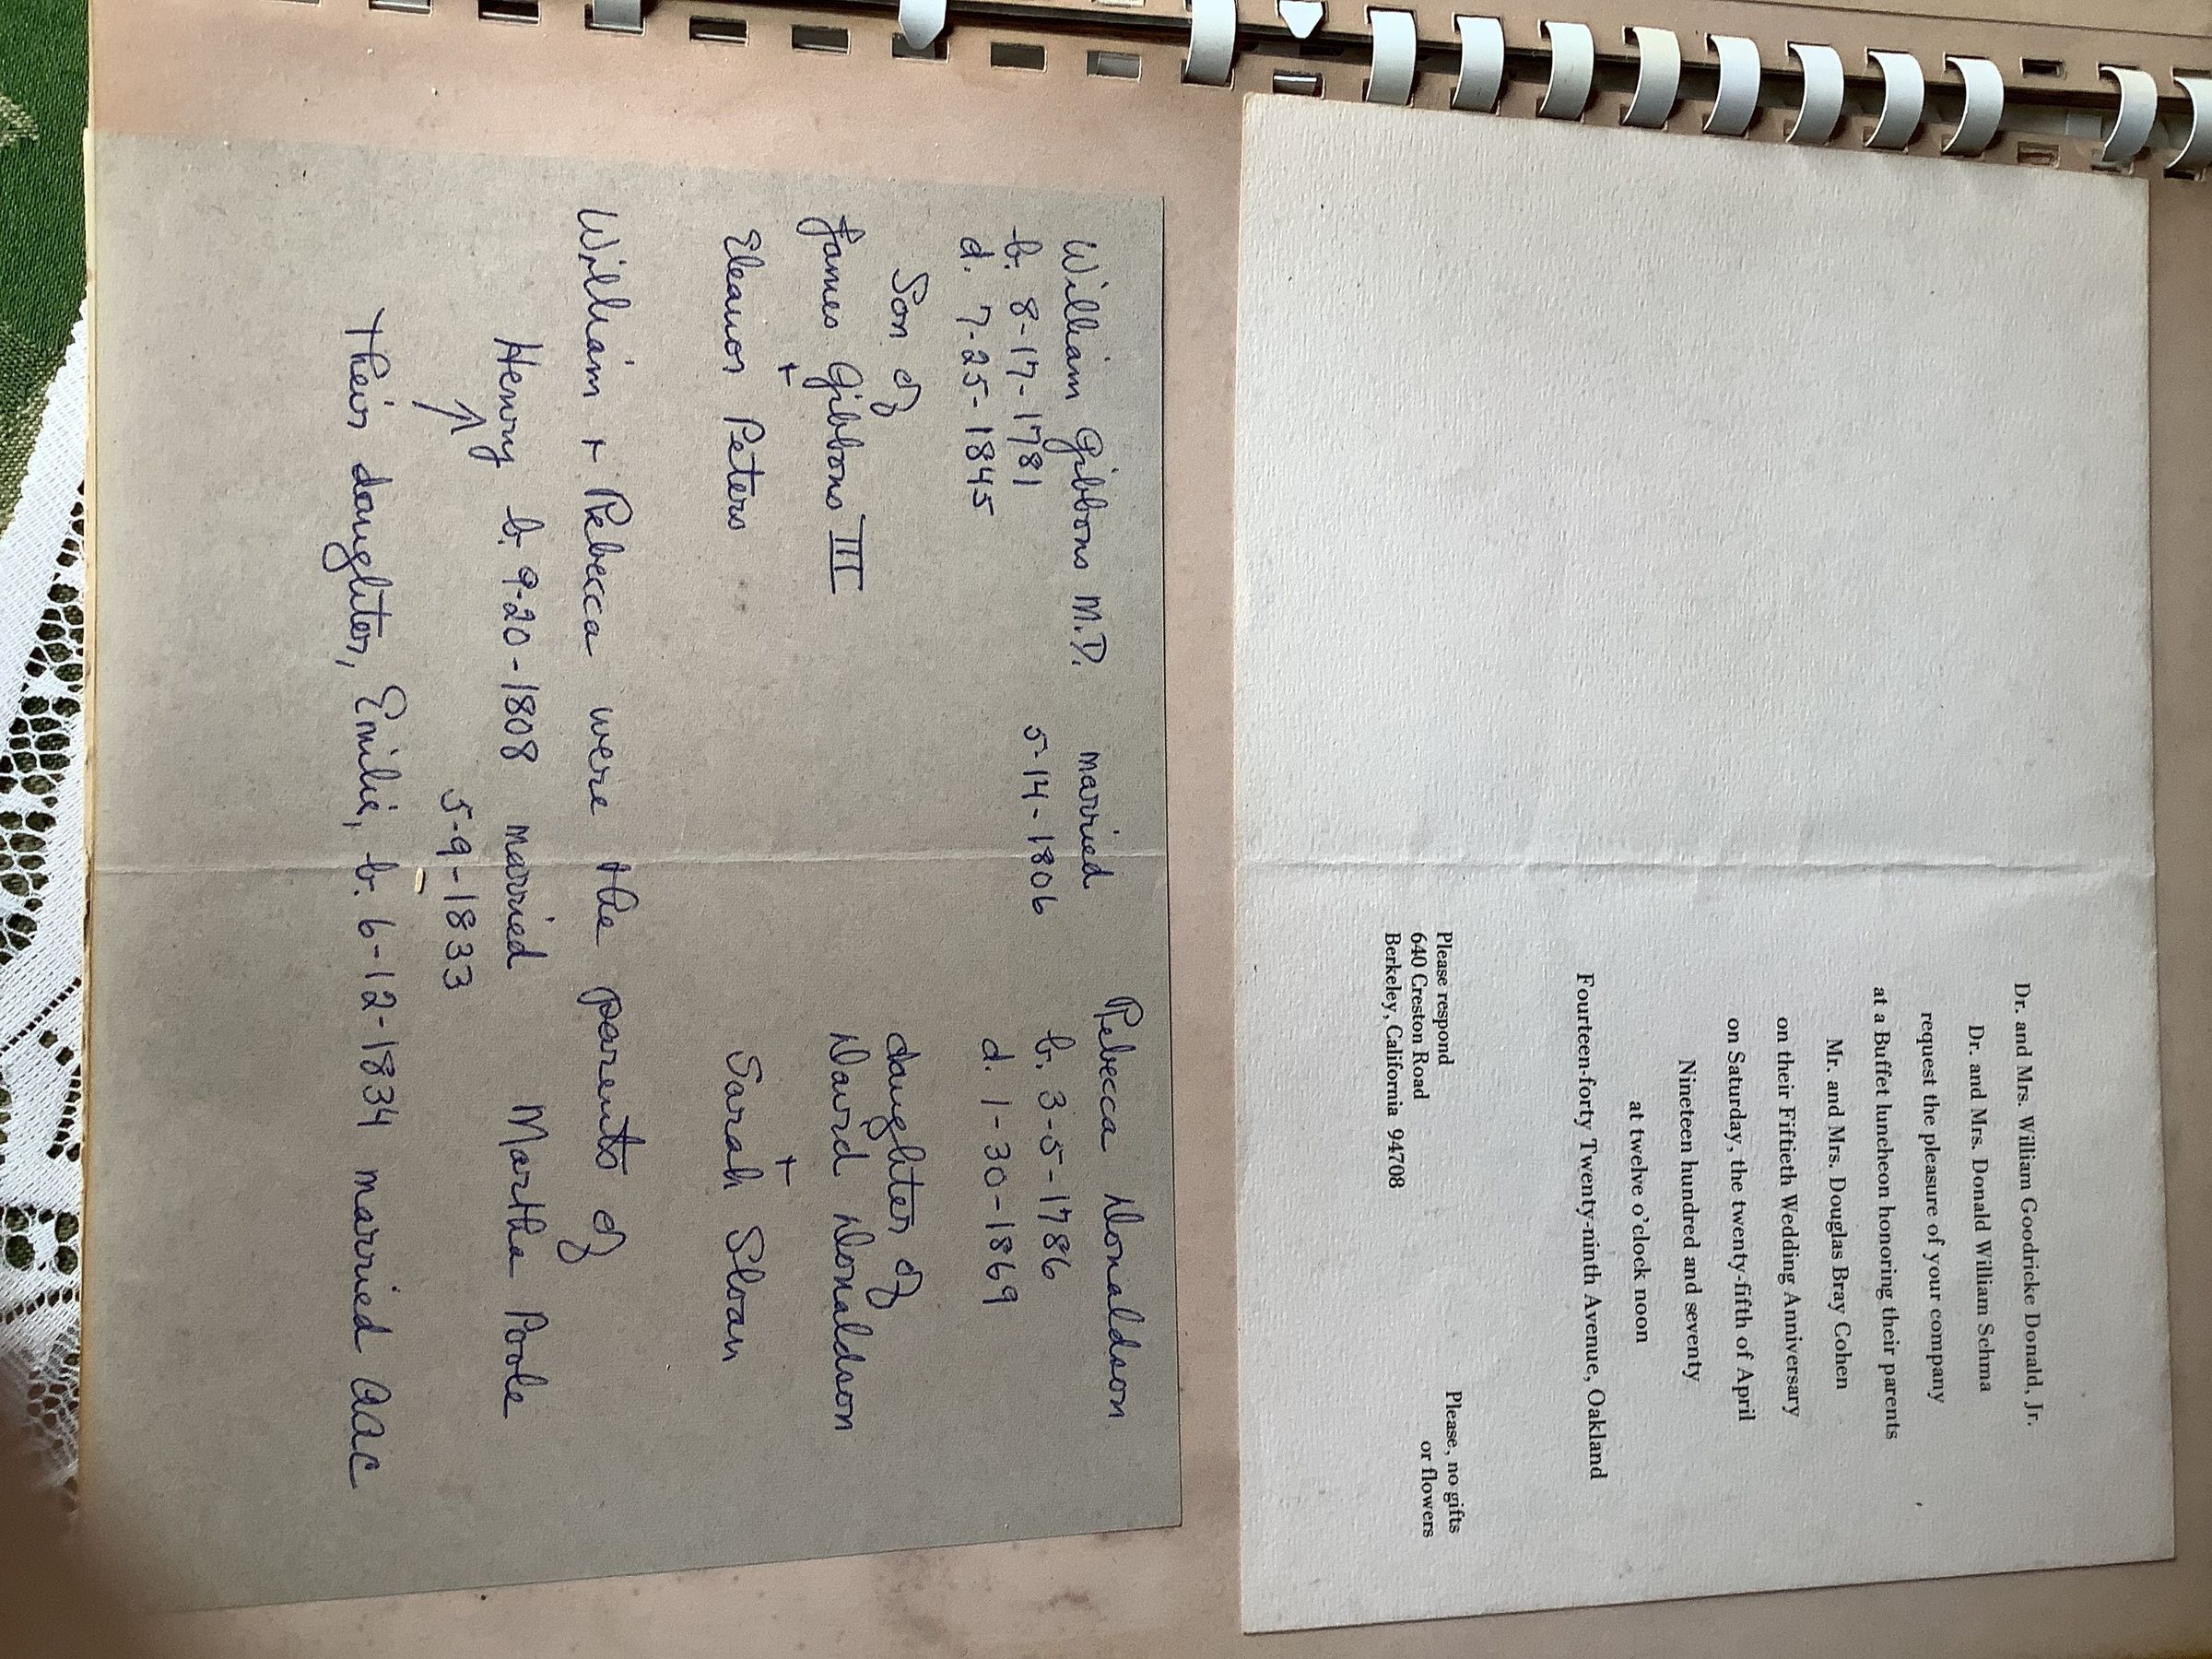 Dr. and Mrs. William Goodricke Donald, Jr.
Dr. and Mrs. Donald William Schma
request the pleasure of your company
at a Buffet luncheon honoring their parents
Mr. and Mrs. Douglas Bray Cohen
on their Fiftieth Wedding Anniversary
on Saturday, the twenty-fifth of April
Nineteen hundred and seventy
at twelve o'clock noon
Fourteen-forty Twenty-ninth Avenue, Oakland
Please respond
640 Creston Road
Berkeley, California 94708
Please, no gifts
or flowers
William Gibbons M.D. married Rebecca Donaldson
b. 8-17-1781 5-14-1806 b. 3-5-1786
d. 7-25-1845 d. 1-30-1869
Son of daughter of
James Gibbons III David Donaldson
+ +
Eleanor Peters Sarah Sloan
William + Rebecca were the parents of
Henry b. 9-20-1808 married Martha Poole
5-9-1833
Their daughter, Emilie, b. 6-12-1834 married AAC